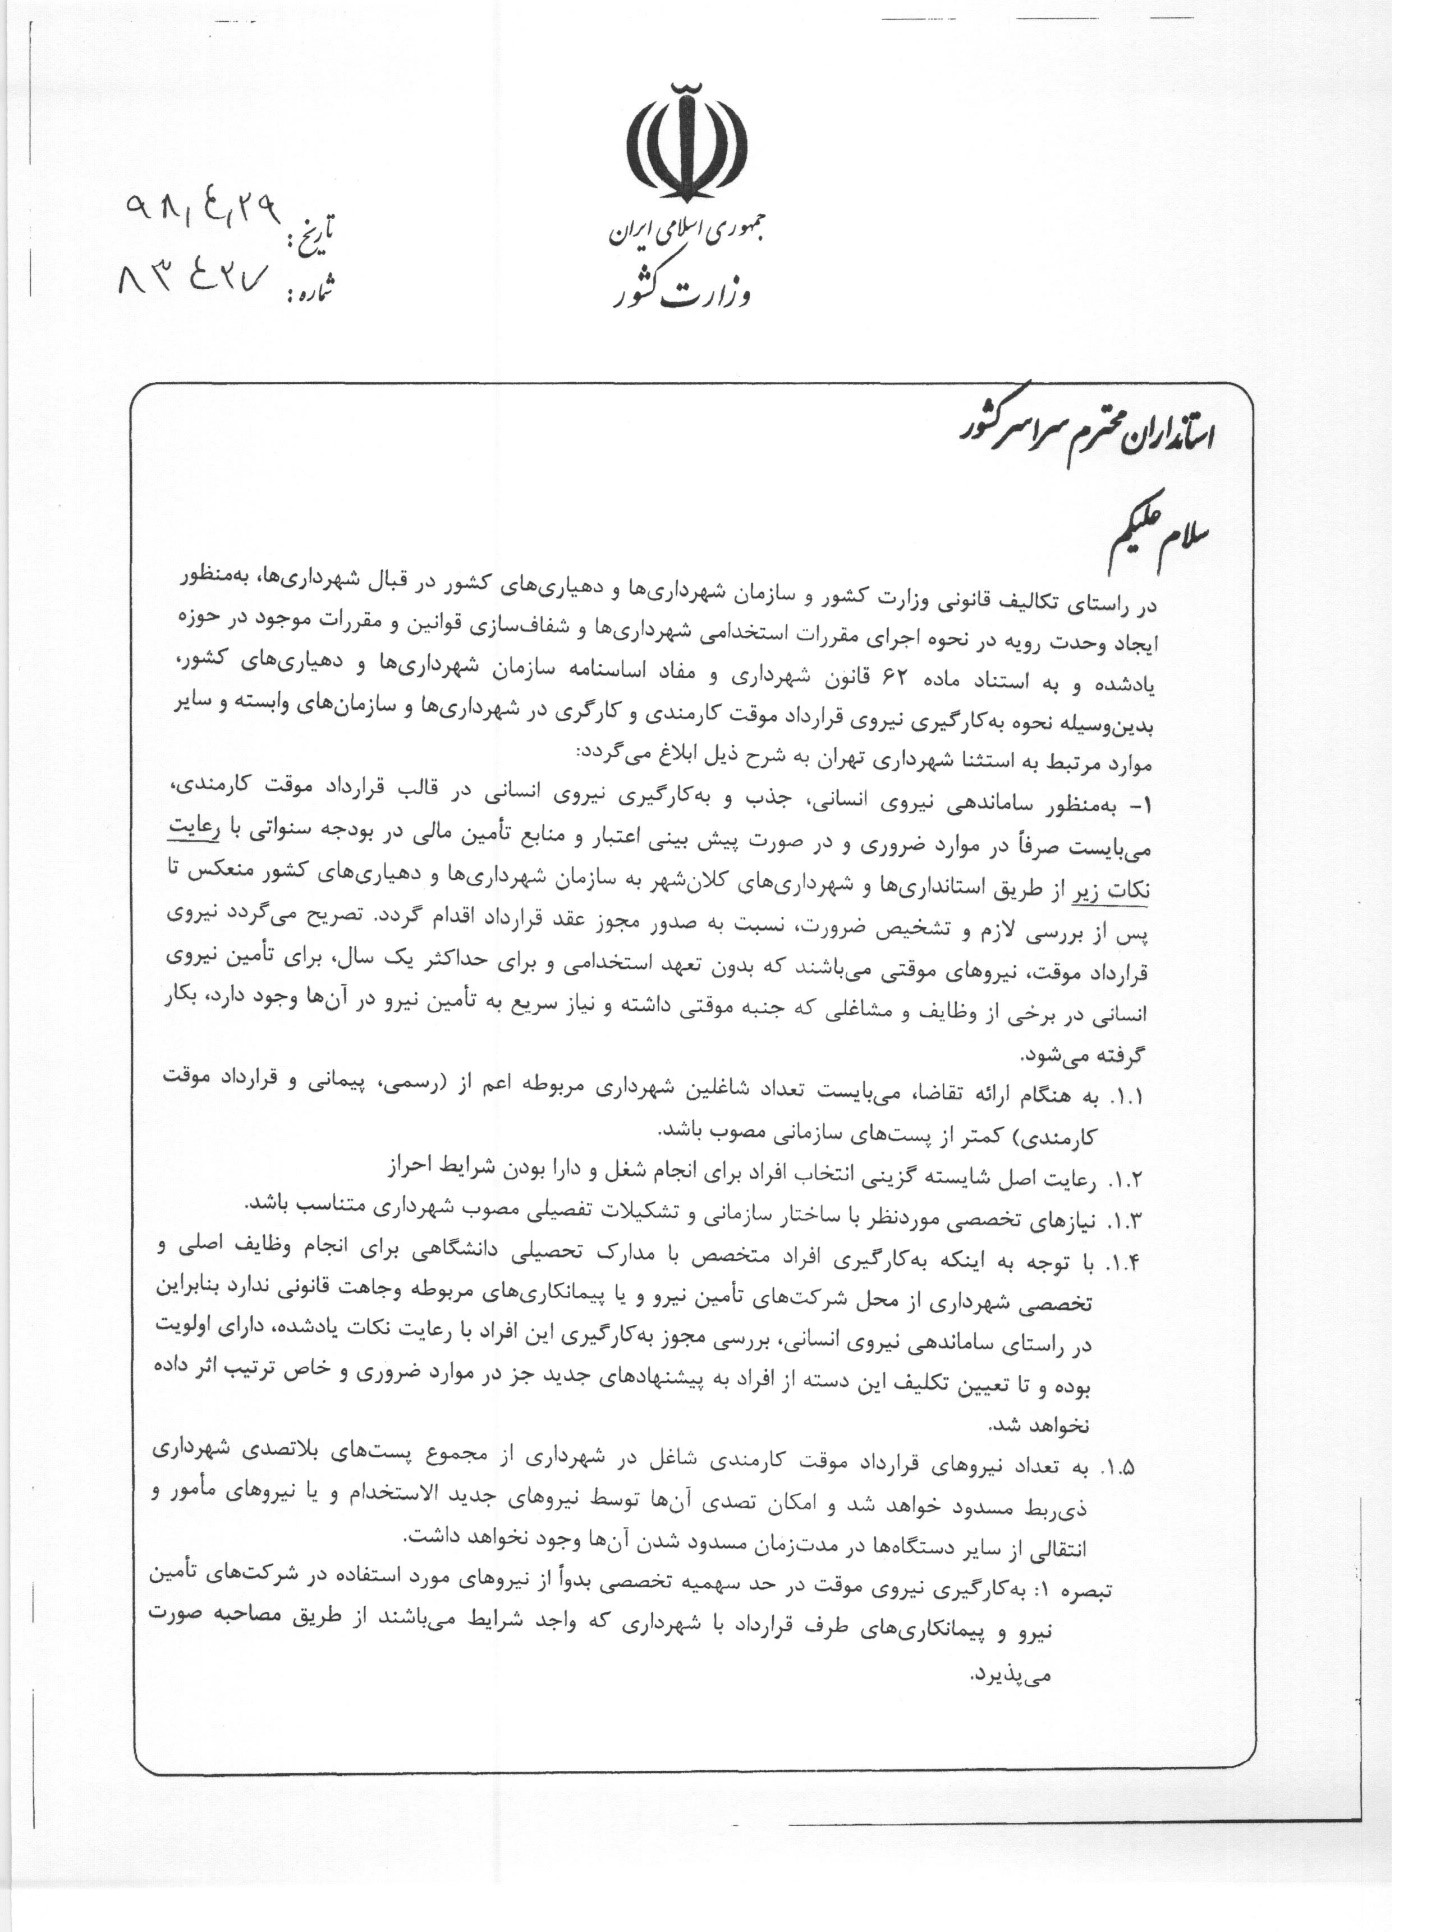 جمهوری اسلامی ایران
وزارت کشور
تاریخ: ۹۸,۴,۲۹
شماره: ۸۳۴۲۷
استانداران محترم سراسر کشور
سلام علیکم
در راستای تکالیف قانونی وزارت کشور و سازمان شهرداری‌ها و دهیاری‌های کشور در قبال شهرداری‌ها، به‌منظور
ایجاد وحدت رویه در نحوه اجرای مقررات استخدامی شهرداری‌ها و شفاف‌سازی قوانین و مقررات موجود در حوزه
یادشده و به استناد ماده ۶۲ قانون شهرداری و مفاد اساسنامه سازمان شهرداری‌ها و دهیاری‌های کشور،
بدین‌وسیله نحوه به‌کارگیری نیروی قرارداد موقت کارمندی و کارگری در شهرداری‌ها و سازمان‌های وابسته و سایر
موارد مرتبط به استثنا شهرداری تهران به شرح ذیل ابلاغ می‌گردد:
۱- به‌منظور ساماندهی نیروی انسانی، جذب و به‌کارگیری نیروی انسانی در قالب قرارداد موقت کارمندی،
می‌بایست صرفاً در موارد ضروری و در صورت پیش بینی اعتبار و منابع تأمین مالی در بودجه سنواتی با رعایت
نکات زیر از طریق استانداری‌ها و شهرداری‌های کلان‌شهر به سازمان شهرداری‌ها و دهیاری‌های کشور منعکس تا
پس از بررسی لازم و تشخیص ضرورت، نسبت به صدور مجوز عقد قرارداد اقدام گردد. تصریح می‌گردد نیروی
قرارداد موقت، نیروهای موقتی می‌باشند که بدون تعهد استخدامی و برای حداکثر یک سال، برای تأمین نیروی
انسانی در برخی از وظایف و مشاغلی که جنبه موقتی داشته و نیاز سریع به تأمین نیرو در آن‌ها وجود دارد، بکار
گرفته می‌شود.
۱.۱. به هنگام ارائه تقاضا، می‌بایست تعداد شاغلین شهرداری مربوطه اعم از (رسمی، پیمانی و قرارداد موقت
کارمندی) کمتر از پست‌های سازمانی مصوب باشد.
۱.۲. رعایت اصل شایسته گزینی انتخاب افراد برای انجام شغل و دارا بودن شرایط احراز
۱.۳. نیازهای تخصصی موردنظر با ساختار سازمانی و تشکیلات تفصیلی مصوب شهرداری متناسب باشد.
۱.۴. با توجه به اینکه به‌کارگیری افراد متخصص با مدارک تحصیلی دانشگاهی برای انجام وظایف اصلی و
تخصصی شهرداری از محل شرکت‌های تأمین نیرو و یا پیمانکاری‌های مربوطه وجاهت قانونی ندارد بنابراین
در راستای ساماندهی نیروی انسانی، بررسی مجوز به‌کارگیری این افراد با رعایت نکات یادشده، دارای اولویت
بوده و تا تعیین تکلیف این دسته از افراد به پیشنهادهای جدید جز در موارد ضروری و خاص ترتیب اثر داده
نخواهد شد.
۱.۵. به تعداد نیروهای قرارداد موقت کارمندی شاغل در شهرداری از مجموع پست‌های بلاتصدی شهرداری
ذی‌ربط مسدود خواهد شد و امکان تصدی آن‌ها توسط نیروهای جدید الاستخدام و یا نیروهای مأمور و
انتقالی از سایر دستگاه‌ها در مدت‌زمان مسدود شدن آن‌ها وجود نخواهد داشت.
تبصره ۱: به‌کارگیری نیروی موقت در حد سهمیه تخصصی بدواً از نیروهای مورد استفاده در شرکت‌های تأمین
نیرو و پیمانکاری‌های طرف قرارداد با شهرداری که واجد شرایط می‌باشند از طریق مصاحبه صورت
می‌پذیرد.